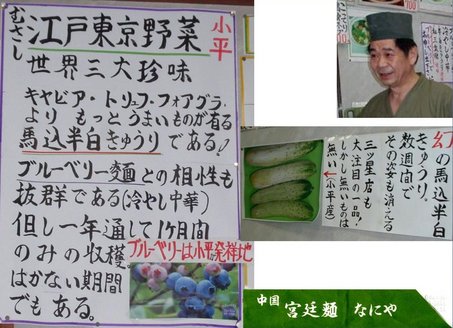 むさし
江戸東京野菜
小平
世界三大珍味
キャビア・トリュフ・フォアグラ.
より もっとうまいものが有る
馬込半白きゅうりである!
ブルーベリー麺との相性も
抜群である(冷やし中華)
但し一年通して1ヶ月間
のみの収穫
はかない期間
でもある。
ブルーベリーは小平が発祥地
幻の馬込半白
きゅうり。
数週間で
その姿も消える
三ッ星店も
大注目の一品!
しかし無いものは
無い
(小平産)
中国 宮廷麺 なにや